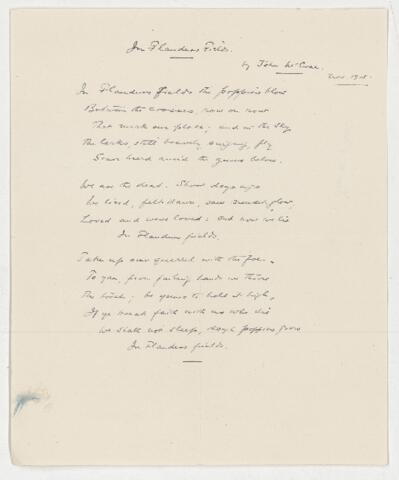 In Flanders Fields.
by John McCrae.
Nov. 1918.
In Flanders fields the poppies blow
Between the crosses, row on row
That mark our place; and in the sky
The larks, still bravely singing, fly
Scarce heard amid the guns below.
We are the dead. Short days ago
We lived, felt dawn, saw sunset glow,
Loved and were loved: and now we lie
In Flanders fields.
Take up our quarrel with the foe.
To you, from failing hands we throw
The torch; be yours to hold it high,
If ye break faith with us who die
We shall not sleep, though poppies grow
In Flanders fields.